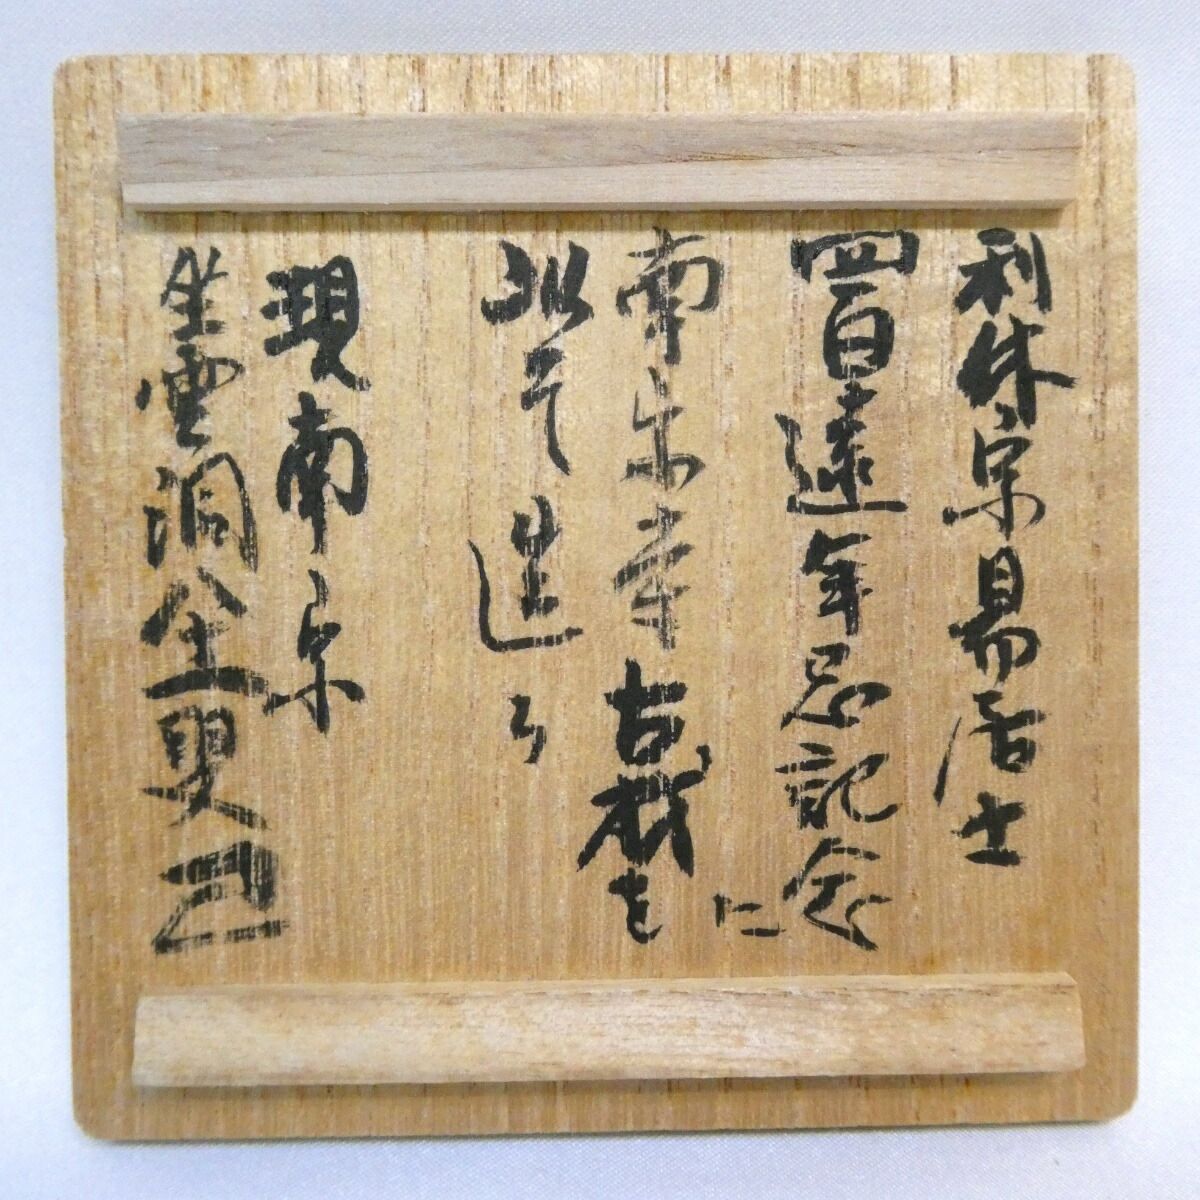 利休宗易居士
四百遠年忌記念に
南宗寺古材を
以て造る
現南宗
坐雲洞